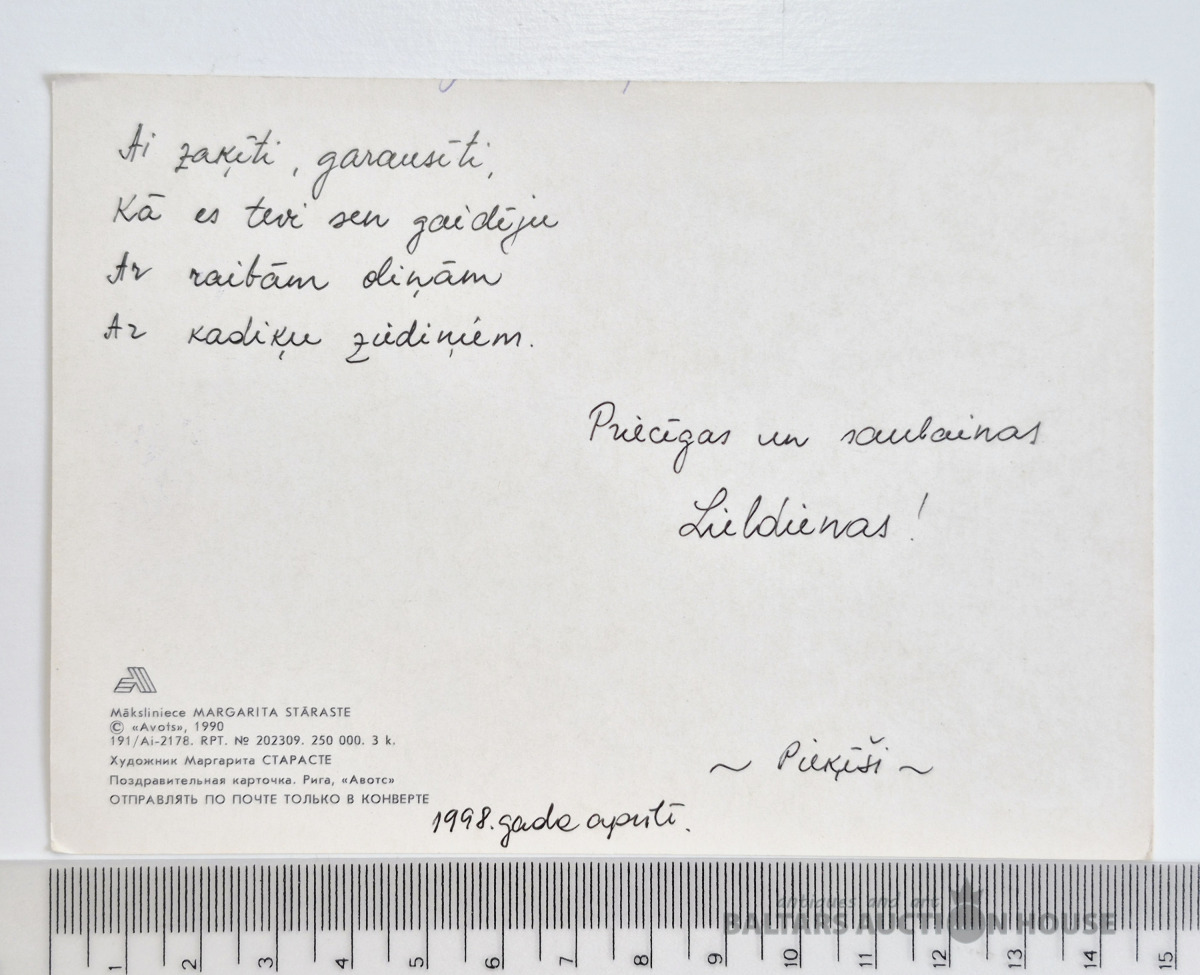 Ai zaķīti, garausīti,
Kā es tevi sen gaidēju
Ar raibām diņām
Ar kadiķu ziediņiem.
Priecīgas un saulainas
Lieldienas!
Māksliniece MARGARITA STĀRASTE
© «Avots», 1990
191/Ai-2178. RPT. № 202309. 250 000. 3 k.
Художник Маргарита СТАРАСТЕ
Поздравительная карточка. Рига, «Авотс»
ОТПРАВЛЯТЬ ПО ПОЧТЕ ТОЛЬКО В КОНВЕРТЕ
~ Pieķīši ~
1998. gada aprīlī.
antiques and art
BALTARS AUCTION HOUSE
1 2 3 4 5 6 7 8 9 10 11 12 13 14 15